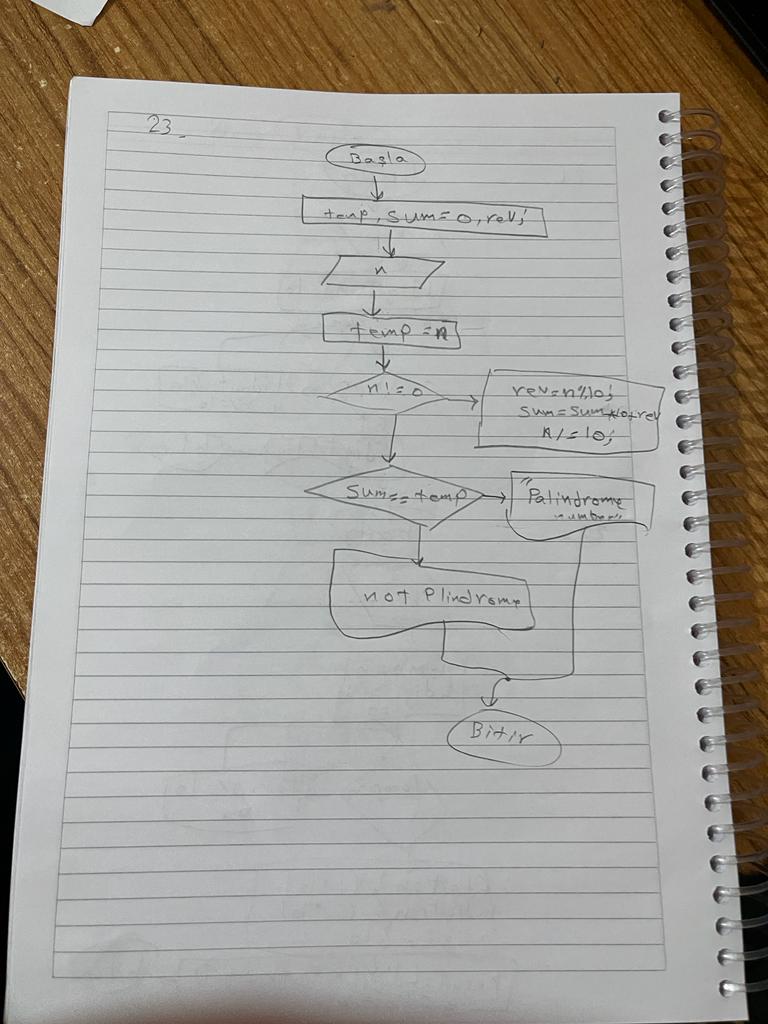 23_
Başla
temp, sum=0, rev;
n
temp = n
n!=0
rev=n%10;
sum=sum*10+rev
n/=10;
sum==temp
"Palindrome
number"
not Plindrome
Bitir